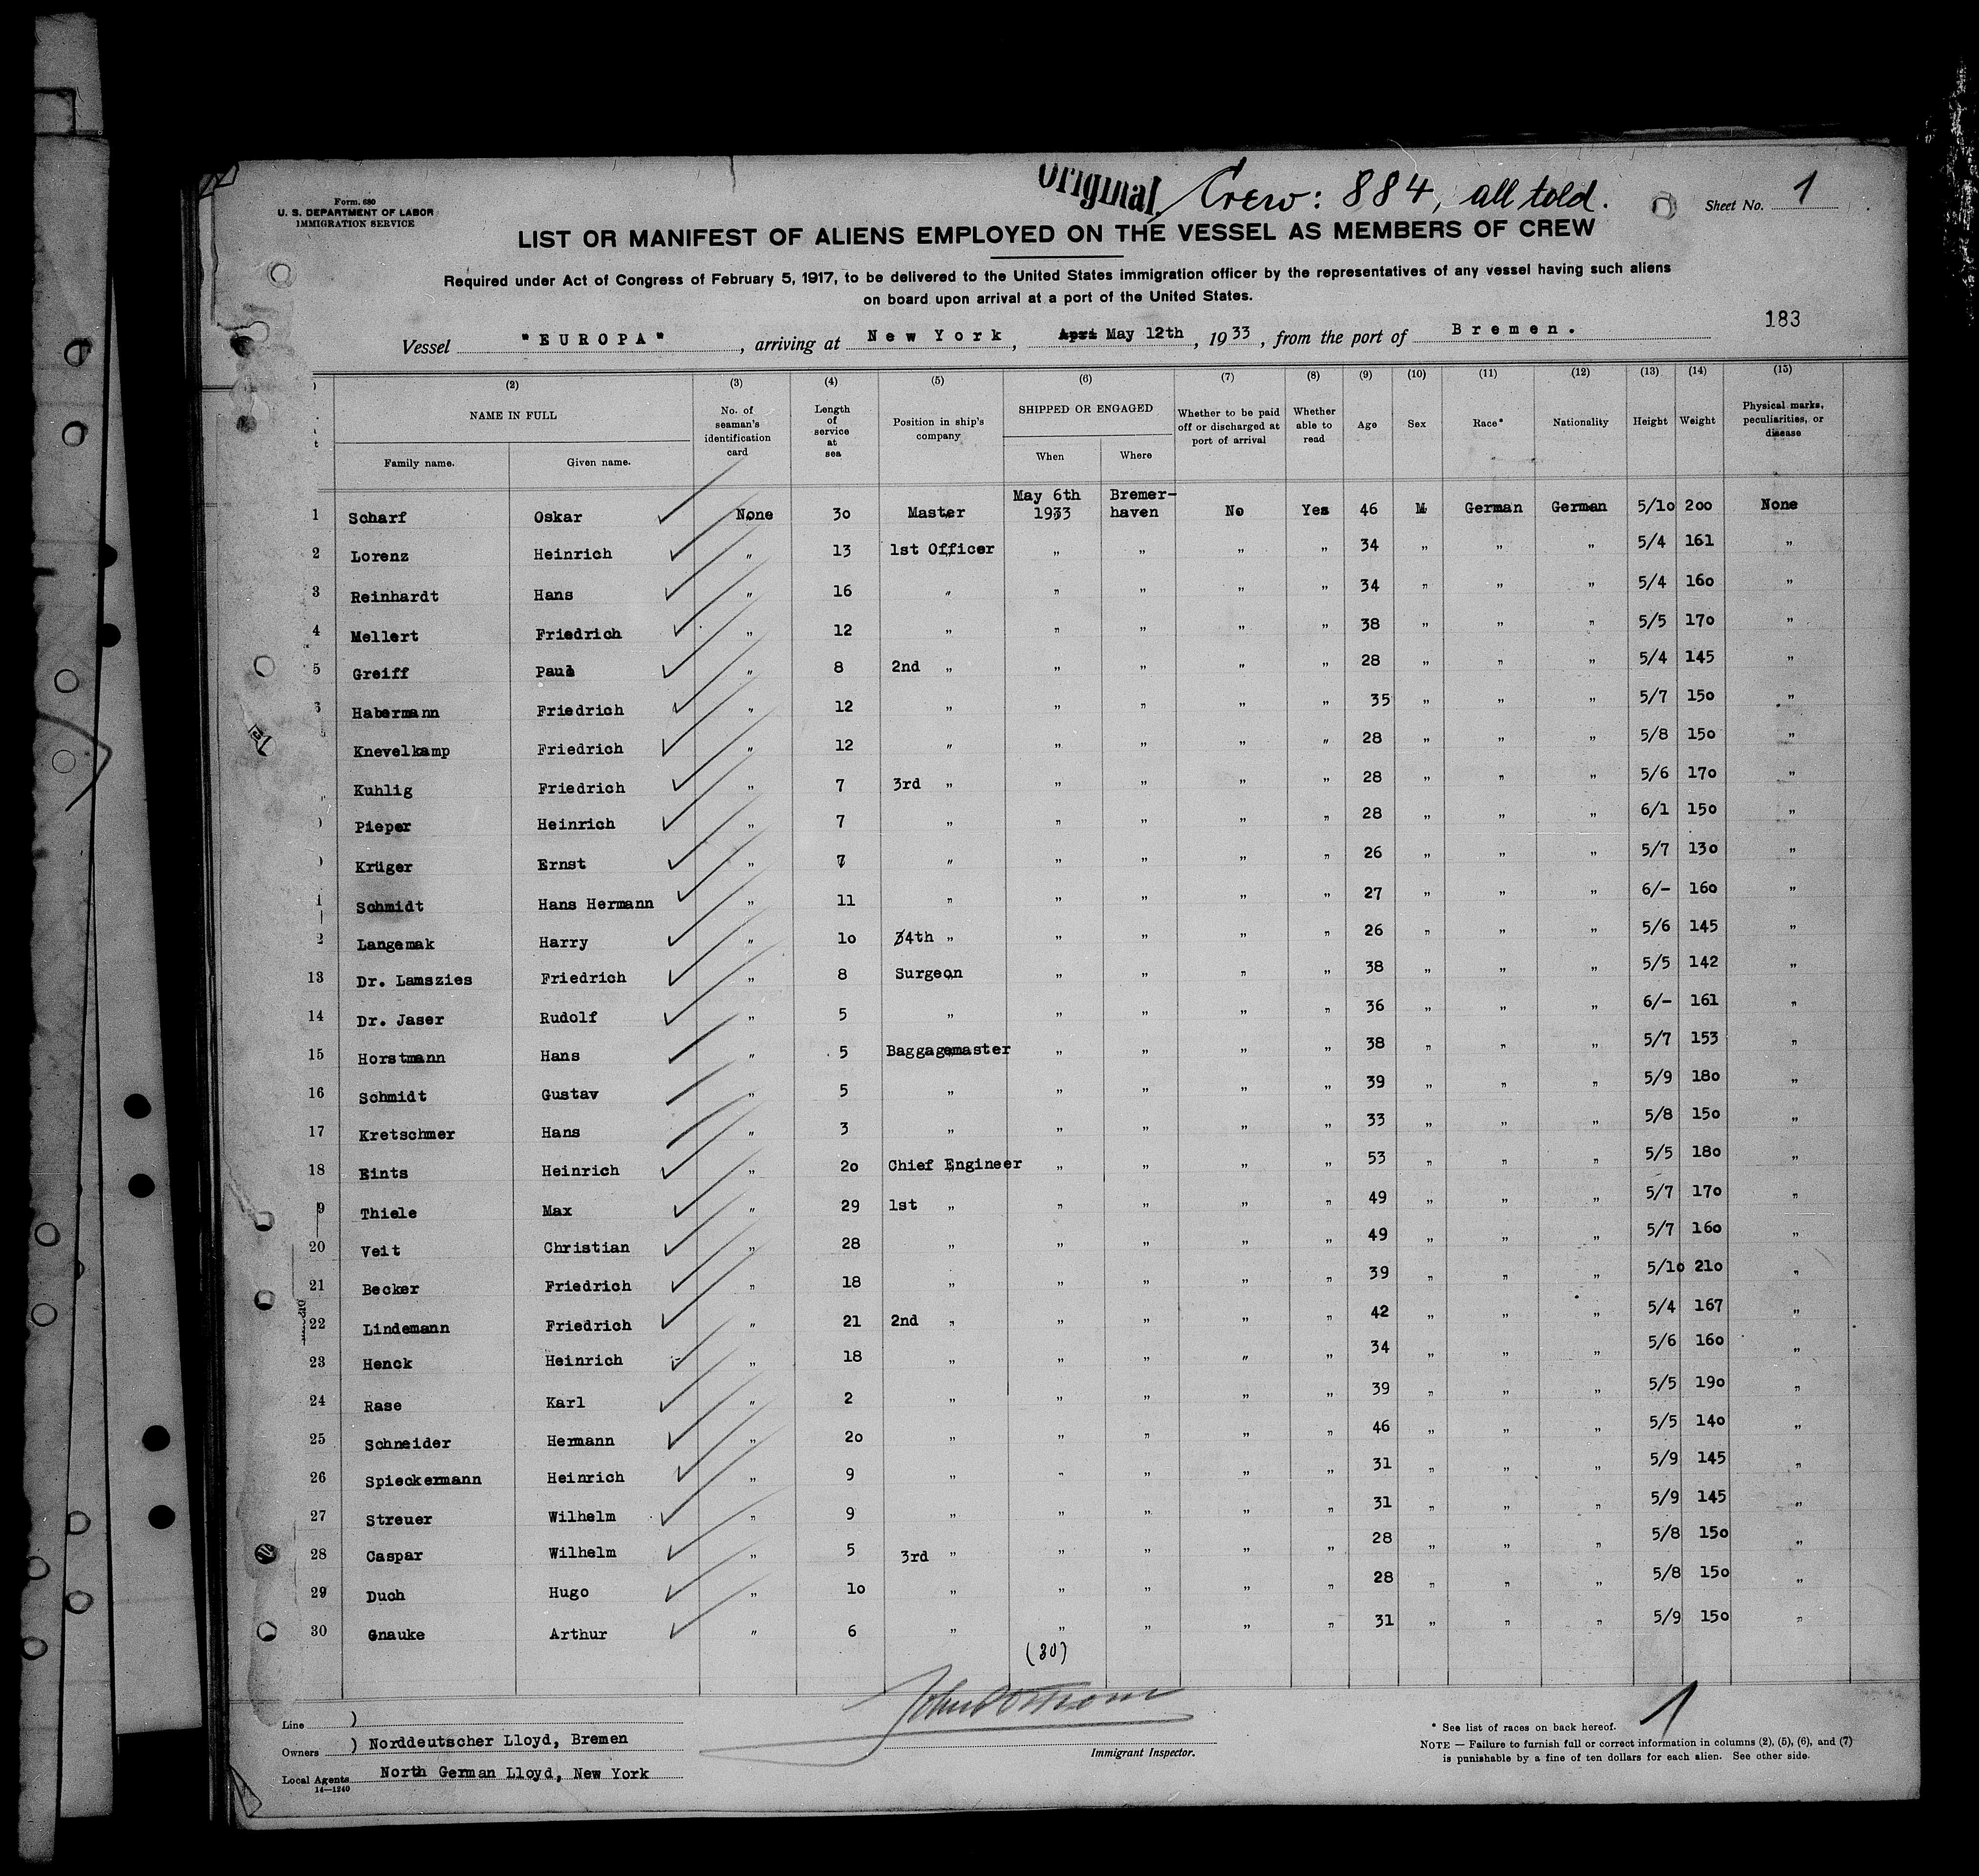 Original. Crew: 884, all told.
Form. 680
U. S. DEPARTMENT OF LABOR
IMMIGRATION SERVICE
Sheet No. 1
LIST OR MANIFEST OF ALIENS EMPLOYED ON THE VESSEL AS MEMBERS OF CREW
Required under Act of Congress of February 5, 1917, to be delivered to the United States immigration officer by the representatives of any vessel having such aliens
on board upon arrival at a port of the United States.
183
Vessel "EUROPA", arriving at New York, Apri May 12th, 1933, from the port of Bremen.
(2) (3) (4) (5) (6) (7) (8) (9) (10) (11) (12) (13) (14) (15)
NAME IN FULL No. of seaman's identification card Length of service at sea Position in ship's company SHIPPED OR ENGAGED Whether to be paid off or discharged at port of arrival Whether able to read Age Sex Race* Nationality Height Weight Physical marks, peculiarities, or disease
Family name. Given name. When Where
1 Scharf Oskar None 30 Master May 6th 1933 Bremer-haven No Yes 46 M German German 5/10 200 None
2 Lorenz Heinrich " 13 1st Officer " " " " 34 " " " 5/4 161 "
3 Reinhardt Hans " 16 " " " " " 34 " " " 5/4 160 "
4 Mellert Friedrich " 12 " " " " " 38 " " " 5/5 170 "
5 Greiff Paul " 8 2nd " " " " " 28 " " " 5/4 145 "
Habermann Friedrich " 12 " " " " " 35 " " " 5/7 150 "
Knevelkamp Friedrich " 12 " " " " " 28 " " " 5/8 150 "
Kuhlig Friedrich " 7 3rd " " " " " 28 " " " 5/6 170 "
Pieper Heinrich " 7 " " " " " 28 " " " 6/1 150 "
Krüger Ernst " 7 " " " " " 26 " " " 5/7 130 "
1 Schmidt Hans Hermann " 11 " " " " " 27 " " " 6/- 160 "
2 Langemak Harry " 10 34th " " " " " 26 " " " 5/6 145 "
13 Dr. Lamszies Friedrich " 8 Surgeon " " " " 38 " " " 5/5 142 "
14 Dr. Jaser Rudolf " 5 " " " " " 36 " " " 6/- 161 "
15 Horstmann Hans " 5 Baggagemaster " " " " 38 " " " 5/7 153 "
16 Schmidt Gustav " 5 " " " " " 39 " " " 5/9 180 "
17 Kretschmer Hans " 3 " " " " " 33 " " " 5/8 150 "
18 Eints Heinrich " 20 Chief Engineer " " " " 53 " " " 5/5 180 "
9 Thiele Max " 29 1st " " " " " 49 " " " 5/7 170 "
20 Veit Christian " 28 " " " " " 49 " " " 5/7 160 "
21 Becker Friedrich " 18 " " " " " 39 " " " 5/10 210 "
22 Lindemann Friedrich " 21 2nd " " " " " 42 " " " 5/4 167 "
23 Henck Heinrich " 18 " " " " " 34 " " " 5/6 160 "
24 Rase Karl " 2 " " " " " 39 " " " 5/5 190 "
25 Schneider Hermann " 20 " " " " " 46 " " " 5/5 140 "
26 Spieckermann Heinrich " 9 " " " " " 31 " " " 5/9 145 "
27 Streuer Wilhelm " 9 " " " " " 31 " " " 5/9 145 "
28 Caspar Wilhelm " 5 3rd " " " " " 28 " " " 5/8 150 "
29 Duch Hugo " 10 " " " " " 28 " " " 5/8 150 "
30 Gnauke Arthur " 6 " " " " " 31 " " " 5/9 150 "
(30)
Line )
Owners ) Norddeutscher Lloyd, Bremen
Local Agents North German Lloyd, New York
14—1240
Immigrant Inspector.
1
* See list of races on back hereof.
NOTE — Failure to furnish full or correct information in columns (2), (5), (6), and (7)
is punishable by a fine of ten dollars for each alien. See other side.